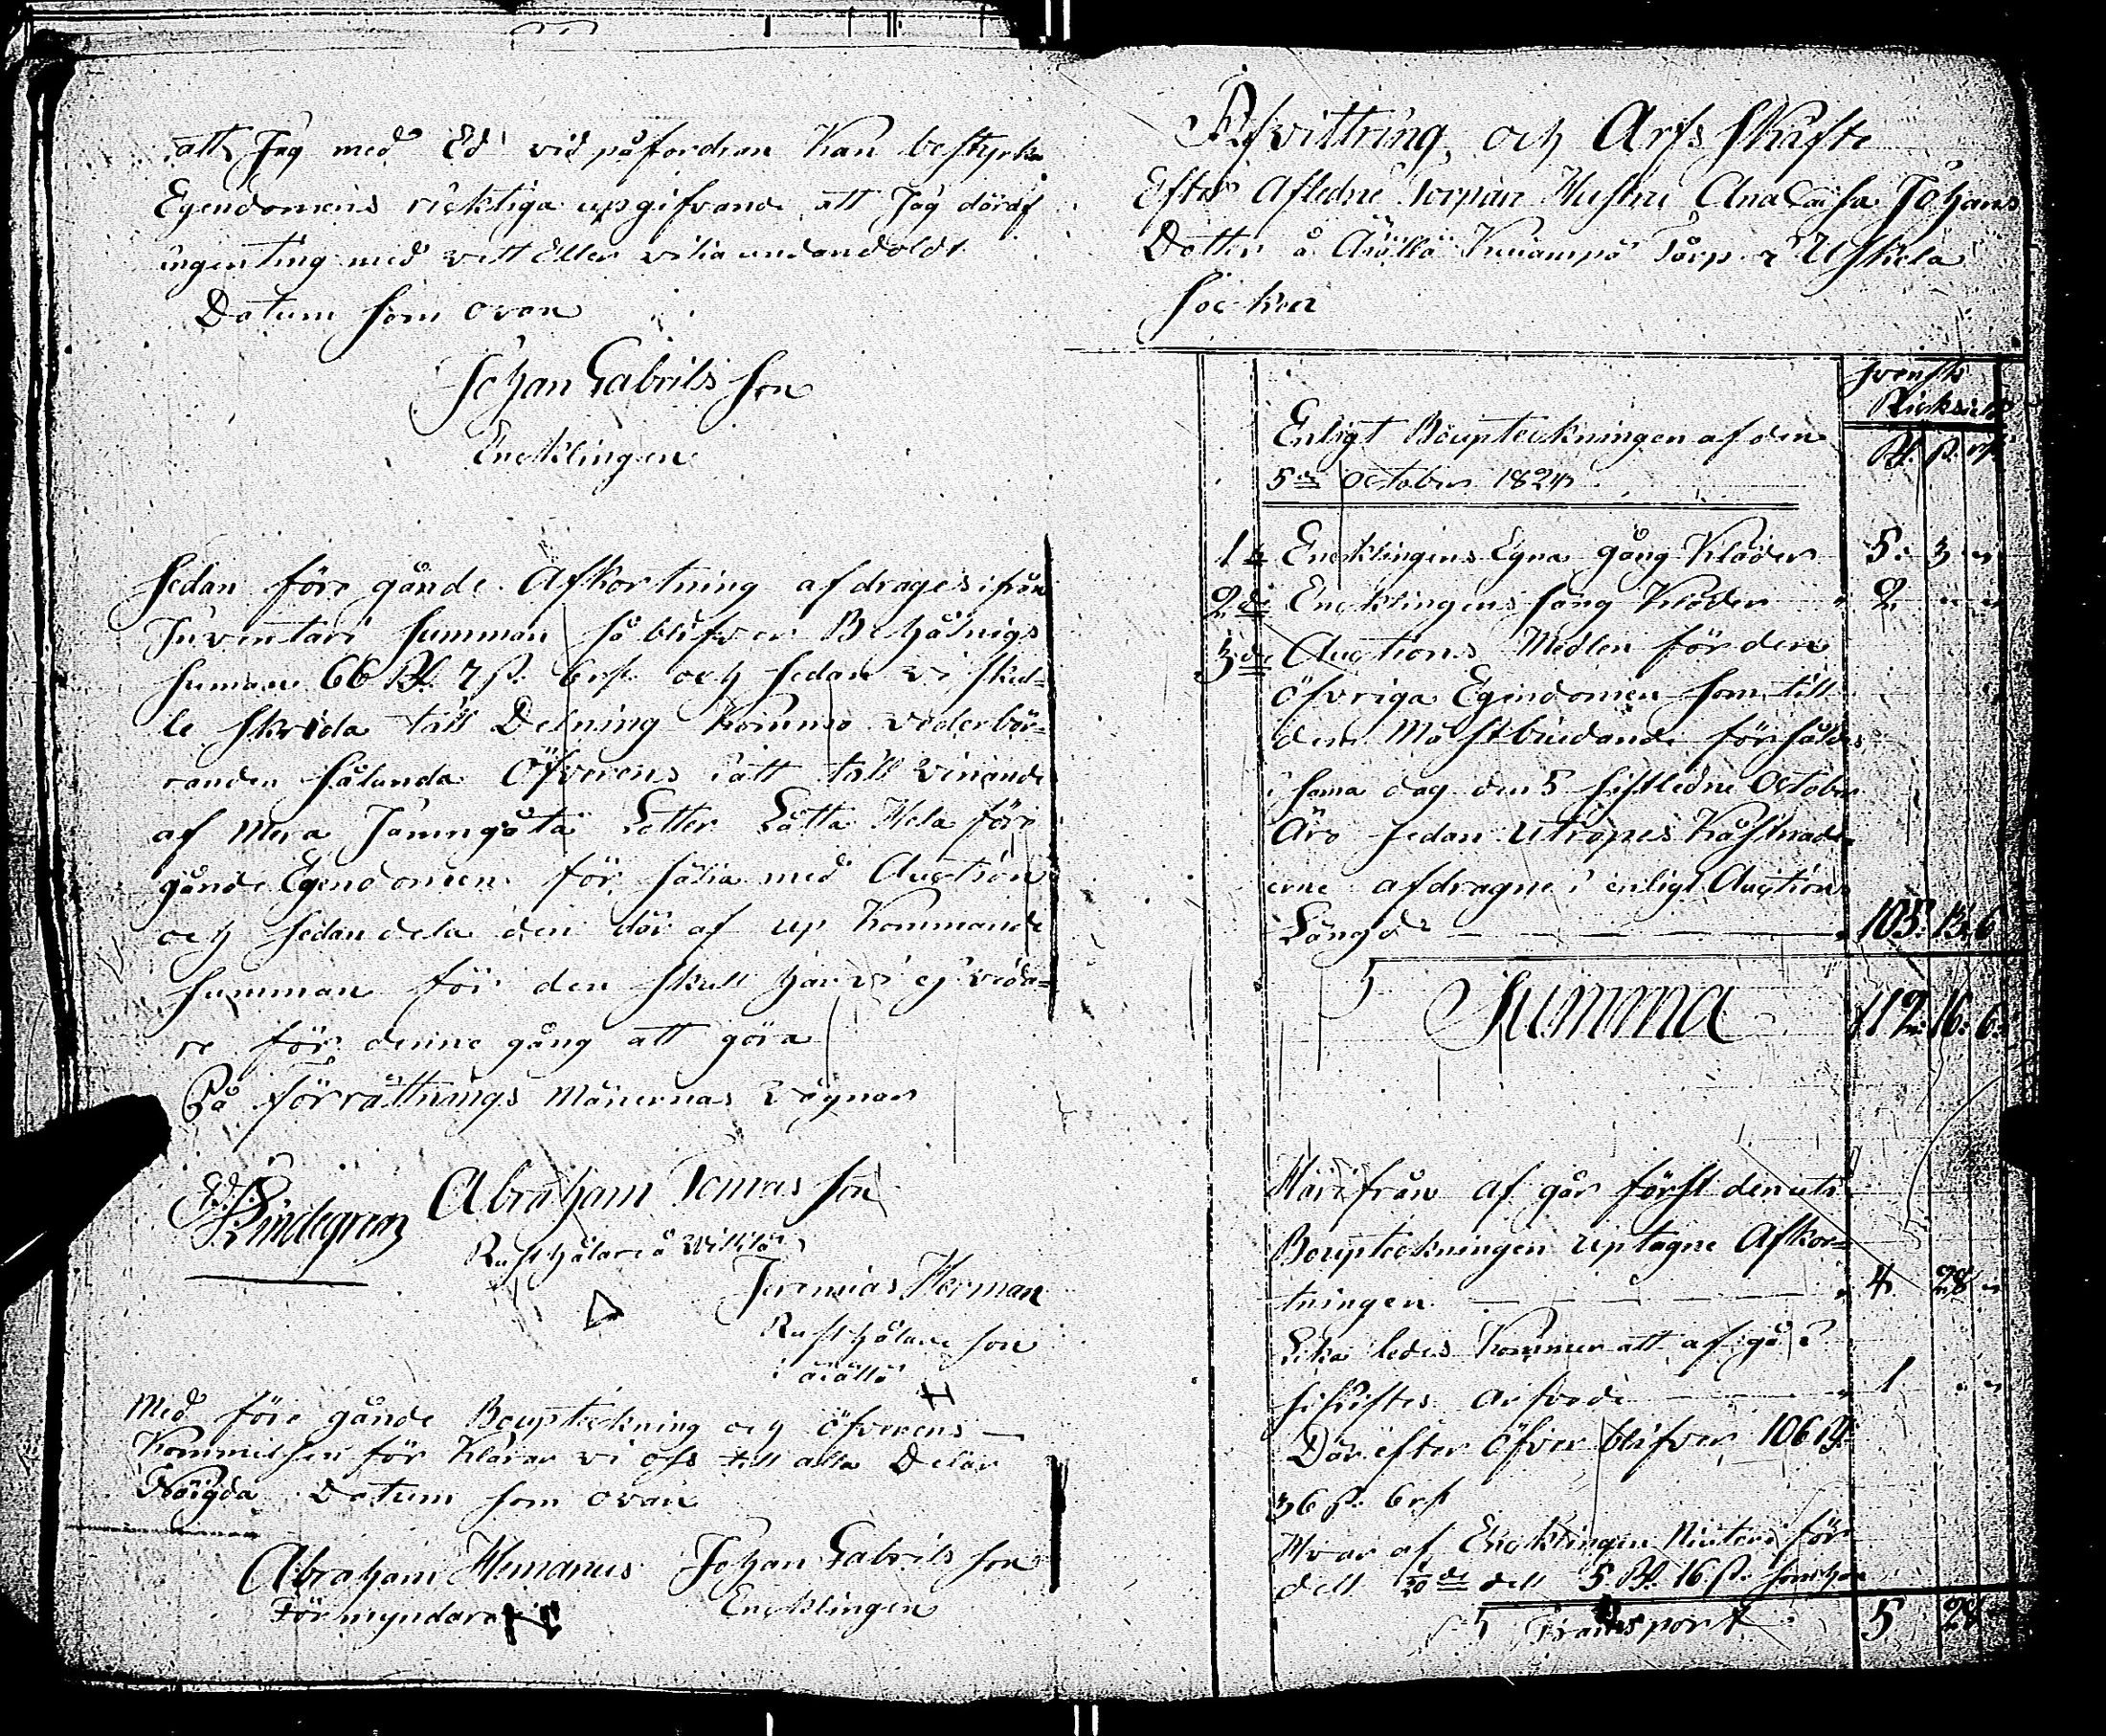 att Jag med Ed vid påfordran Kan bestyrka
Egendomens ricktiga upgifvande att Jag däraf
ingenting med vett Eller vilia undandoldt
Datum som ovan
Johan Gabrils son
Encklingen
sedan före gånde Afkortning afdrages ifrån
Inventari summan så blifver Behålnigs
suman 66 Rd. 7 s. 6 rs. och sedan vi skul-
le skrida till Delning komma vederbör-
randen sålunda Öfverens att till vinande
af mera Jämngåta Lotter Låtta Hela före
gånde Egendomen för sälia med Auction
och sedan dela den där af up Kommande
summan för den skull har vi ej vida-
re för denne gång att göra
På förrättnings mänernas vägnar
Ed. Lindegren Abraham Tomas son
Rusthålare å
Jeremias Herman
Rusthålare son
i
Med före gånde Boupteckning och öfverens
Kommilsen för Klarar vi oss till alla Delar
Nöigda Datum som ovan
Abraham Hemanus Johan Gabrils son
Förmyndare Encklingen
Afvittring, och Arfs skifte
Efter Afledne Torpar Hustru Ana Caisa Johans
Dotter å Torp i Uskela
socken
svensk
Enligt Boupteckningen af den
Rd. s. rs.
5te October 1824
1 Encklingens Egna gång Kläder 5. 3 "
2de Encklingens säng Kläder 2 " "
3die Auctions Medlen för den
öfvriga Egindomen som till
den Mästbiudande försåldes
sama dag den 5 sistledne October
Äro sedan Utropes Kåstnader
erne afdragne enligt Auctions
Längd 105. 13. 6
Summa 112. 16. 6.
Härifrån af går först den uti
Boupteckningen uptagne Afkor-
tningen 4 28 "
Lika ledes Kommer att afgå
skiftes arfvode 1 " "
Där efter öfver blifver 106 Rd.
36 s. 6 rs
Hvar af Encklingen Niuter för
dell 1/20de dell 5 Rd. 16 s. som han
Transport 5 28